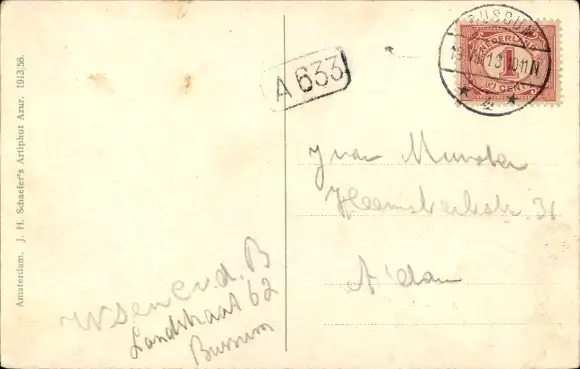 Amsterdam. J. H. Schaefer's Artiphot Azur. 1913/58.
A 633
BUSSUM
10-11N
NEDERLAND
1
CENT
Heemskerkstr. 31
A'dam
v.d. B
Landstraat 62
Bussum